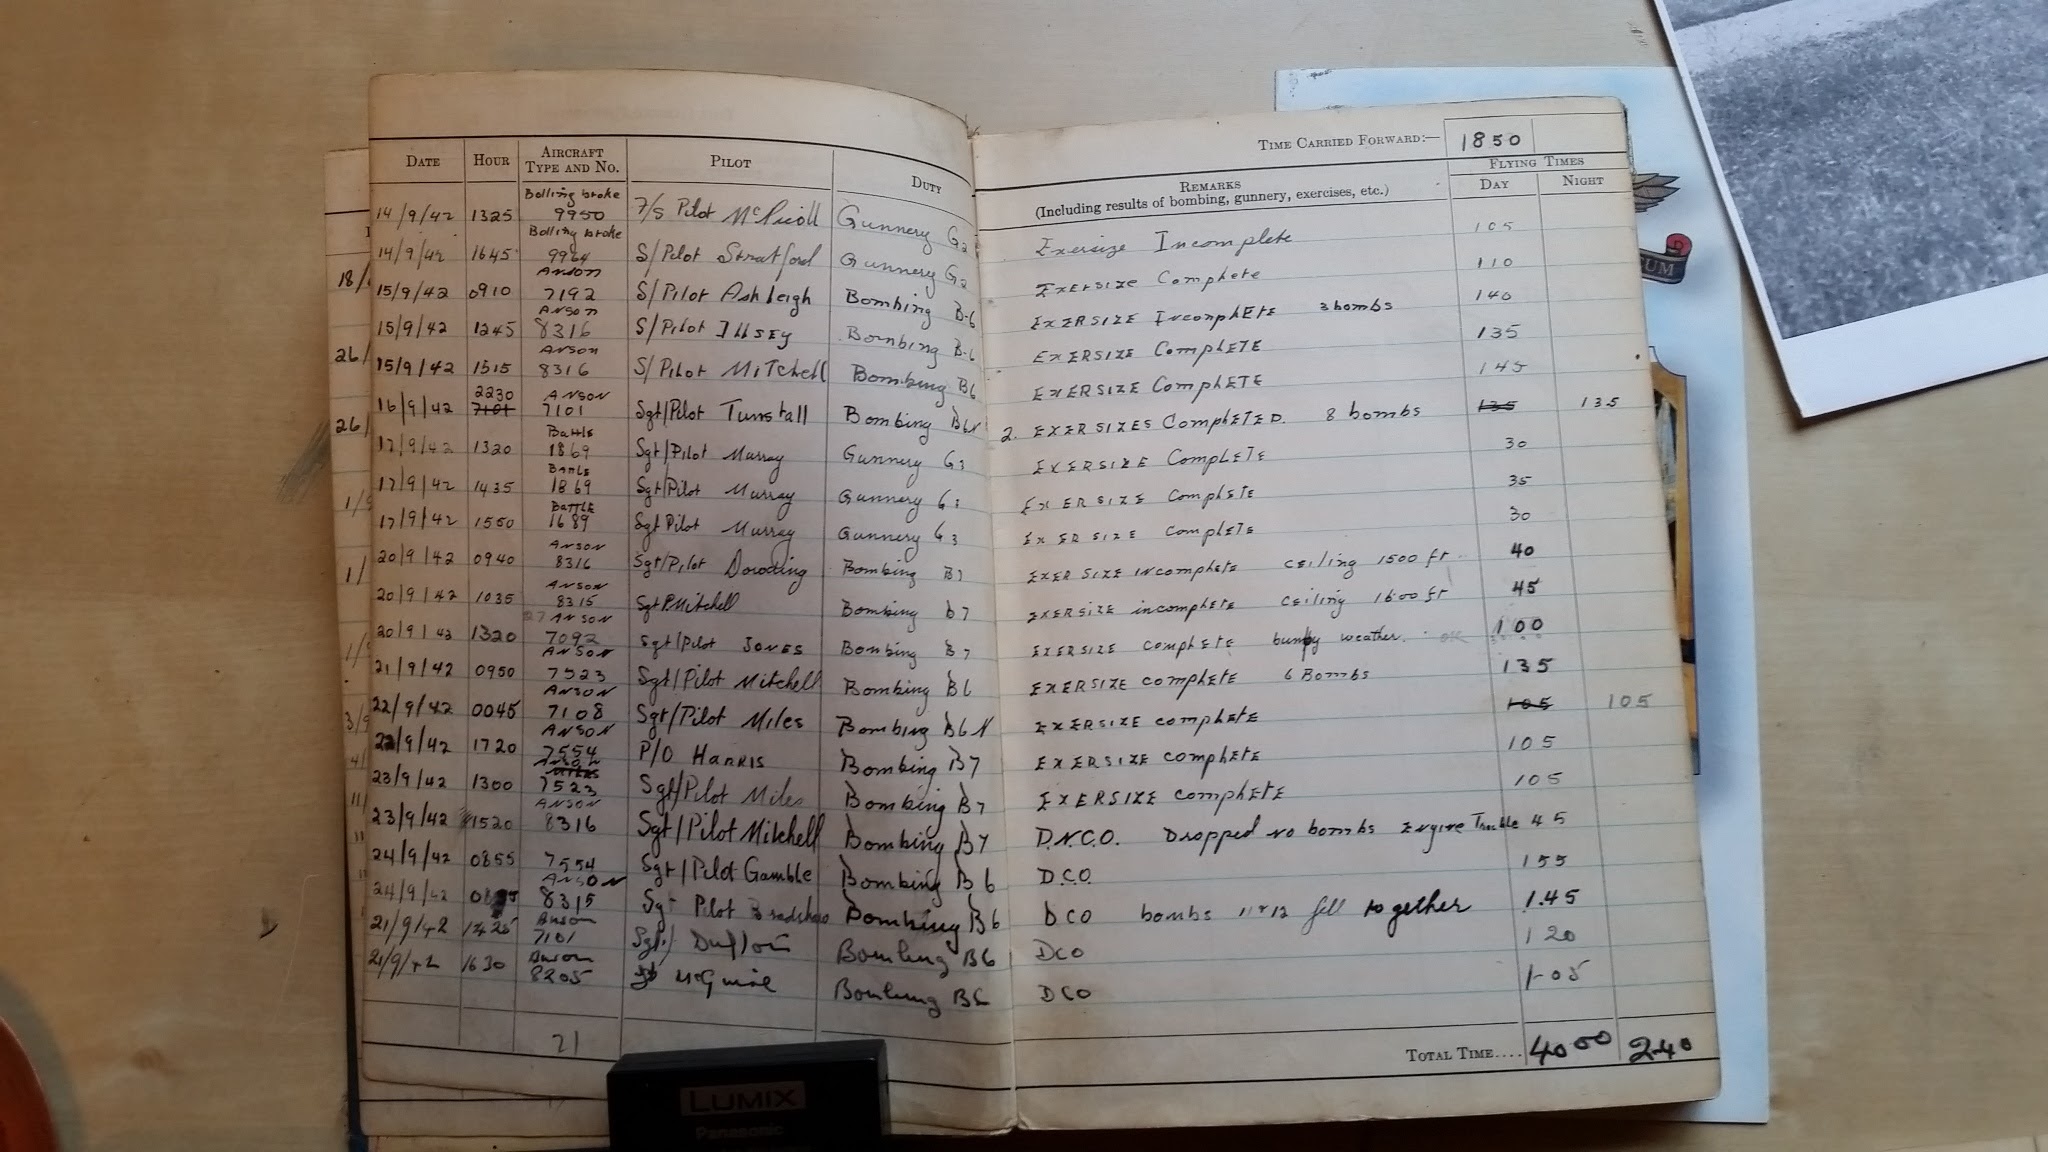 TIME CARRIED FORWARD:— 1850
DATE HOUR AIRCRAFT TYPE AND NO. PILOT DUTY REMARKS (Including results of bombing, gunnery, exercises, etc.) FLYING TIMES DAY NIGHT
Bolling broke
14/9/42 1325 9950 F/S Pilot McNicoll Gunnery G2 Exersize Incomplete 105
Bolling broke
14/9/42 1645 9964 S/Pilot Stratford Gunnery G2 Exersize Complete 110
Anson
15/9/42 0910 7192 S/Pilot Ashleigh Bombing B-6 EXERSIZE IncomplETE 3 bombs 140
Anson
15/9/42 1245 8316 S/Pilot Illsey Bombing B-6 EXERSIZE ComplETE 135
Anson
15/9/42 1515 8316 S/Pilot MiTchell Bombing B6 EXERSIZE ComplETE 145
2230 Anson
16/9/42 7101 7101 Sgt/Pilot Tunstall Bombing B6N 2. EXERSIZES ComplETED. 8 bombs 135 135
Battle
17/9/42 1320 1869 Sgt/Pilot Murray Gunnery G3 EXERSIZE ComplETE 30
Battle
17/9/42 1435 1869 Sgt/Pilot Murray Gunnery G3 EXERSIZE ComplETE 35
Battle
17/9/42 1550 1689 Sgt Pilot Murray Gunnery G3 EXERSIZE ComplETE 30
Anson
20/9/42 0940 8316 Sgt/Pilot Dowding Bombing B7 EXERSIZE incomplETE ceiling 1500 ft. 40
Anson
20/9/42 1035 8315 Sgt P Mitchell Bombing b7 EXERSIZE incomplETE ceiling 1600 ft 45
Anson
20/9/42 1320 7092 Sgt/Pilot JONES Bombing B7 EXERSIZE complETE bumpy weather. 100
Anson
21/9/42 0950 7523 Sgt/Pilot Mitchell Bombing B6 EXERSIZE complETE 6 Bombs 135
Anson
22/9/42 0045 7108 Sgt/Pilot Miles Bombing B6N EXERSIZE complETE 105 105
Anson
22/9/42 1720 7554 P/O HARRIS Bombing B7 EXERSIZE complETE 105
Anson
23/9/42 1300 7523 Sgt/Pilot Miles Bombing B7 EXERSIZE complETE 105
Anson
23/9/42 1520 8316 Sgt/Pilot Mitchell Bombing B7 D.N.C.O. Dropped no bombs Engine Trouble 45
24/9/42 0855 7554 Sgt/Pilot Gamble Bombing B6 D.C.O. 155
Anson
24/9/42 8315 Sgt Pilot Bradshaw Bombing B6 DCO bombs 11 & 12 fell together 1.45
Anson
21/9/42 1425 7101 Sgt/ Bombing B6 DCO 1 20
Anson
21/9/42 1630 8205 McGuire Bombing B6 DCO 1-05
21
TOTAL TIME.... 40 00 2 40
18/
26/
26/
1/9
1/
1/9
3/9
4/
11/
LUMIX
Panasonic